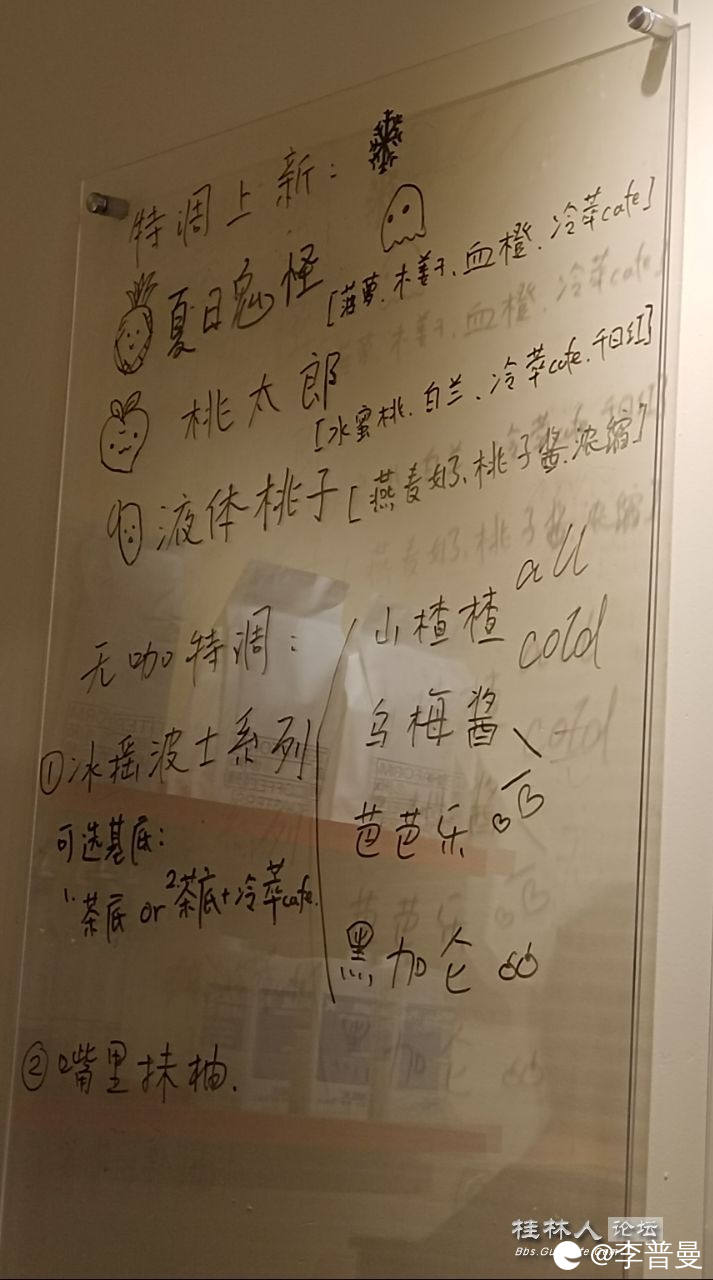 特调上新:
夏日鬼怪 [菠萝、木姜子、血橙、冷萃cafe]
桃太郎 [水蜜桃、白兰、冷萃cafe、千日红]
液体桃子 [燕麦奶、桃子酱、浓缩]
无咖特调:
①冰摇波士系列
可选基底:
1.茶底 or 2.茶底+冷萃cafe.
山楂楂
乌梅酱
芭芭乐
黑加仑
all
cold
②嘴里抹柚.
桂林人论坛
@李普曼